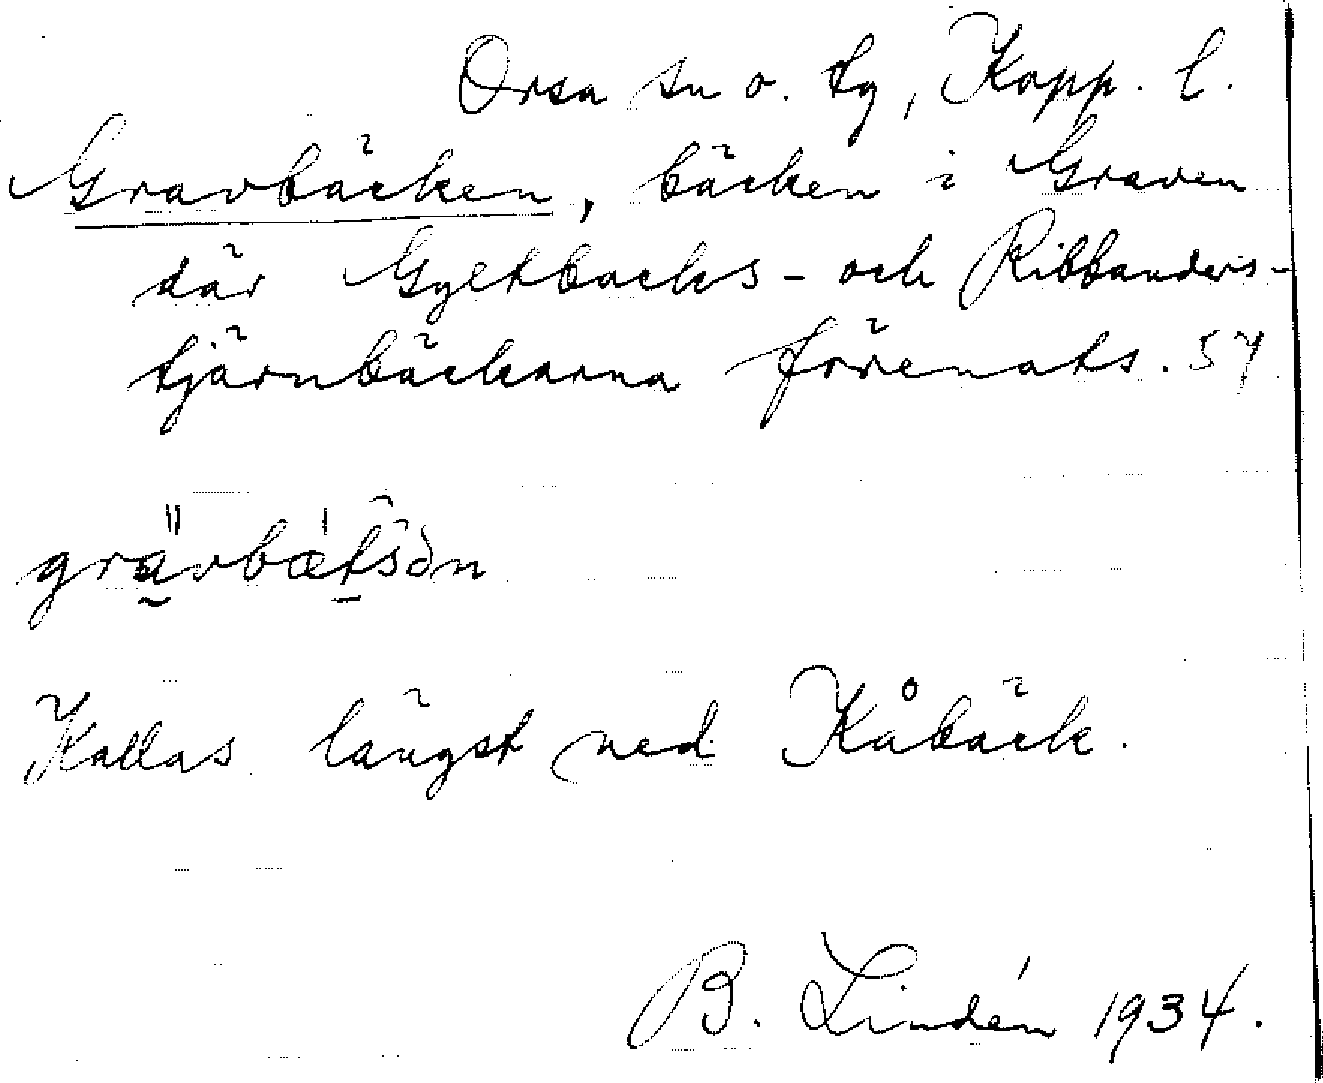 Orsa sn o. tg, Kopp. l.
Gravbäcken, bäcken i Graven
där Gyltbacks- och Ribbanders-
tjärnbäckarna förenats. 57
Kallas längst ned Kåbäck.
B. Lindén 1934.